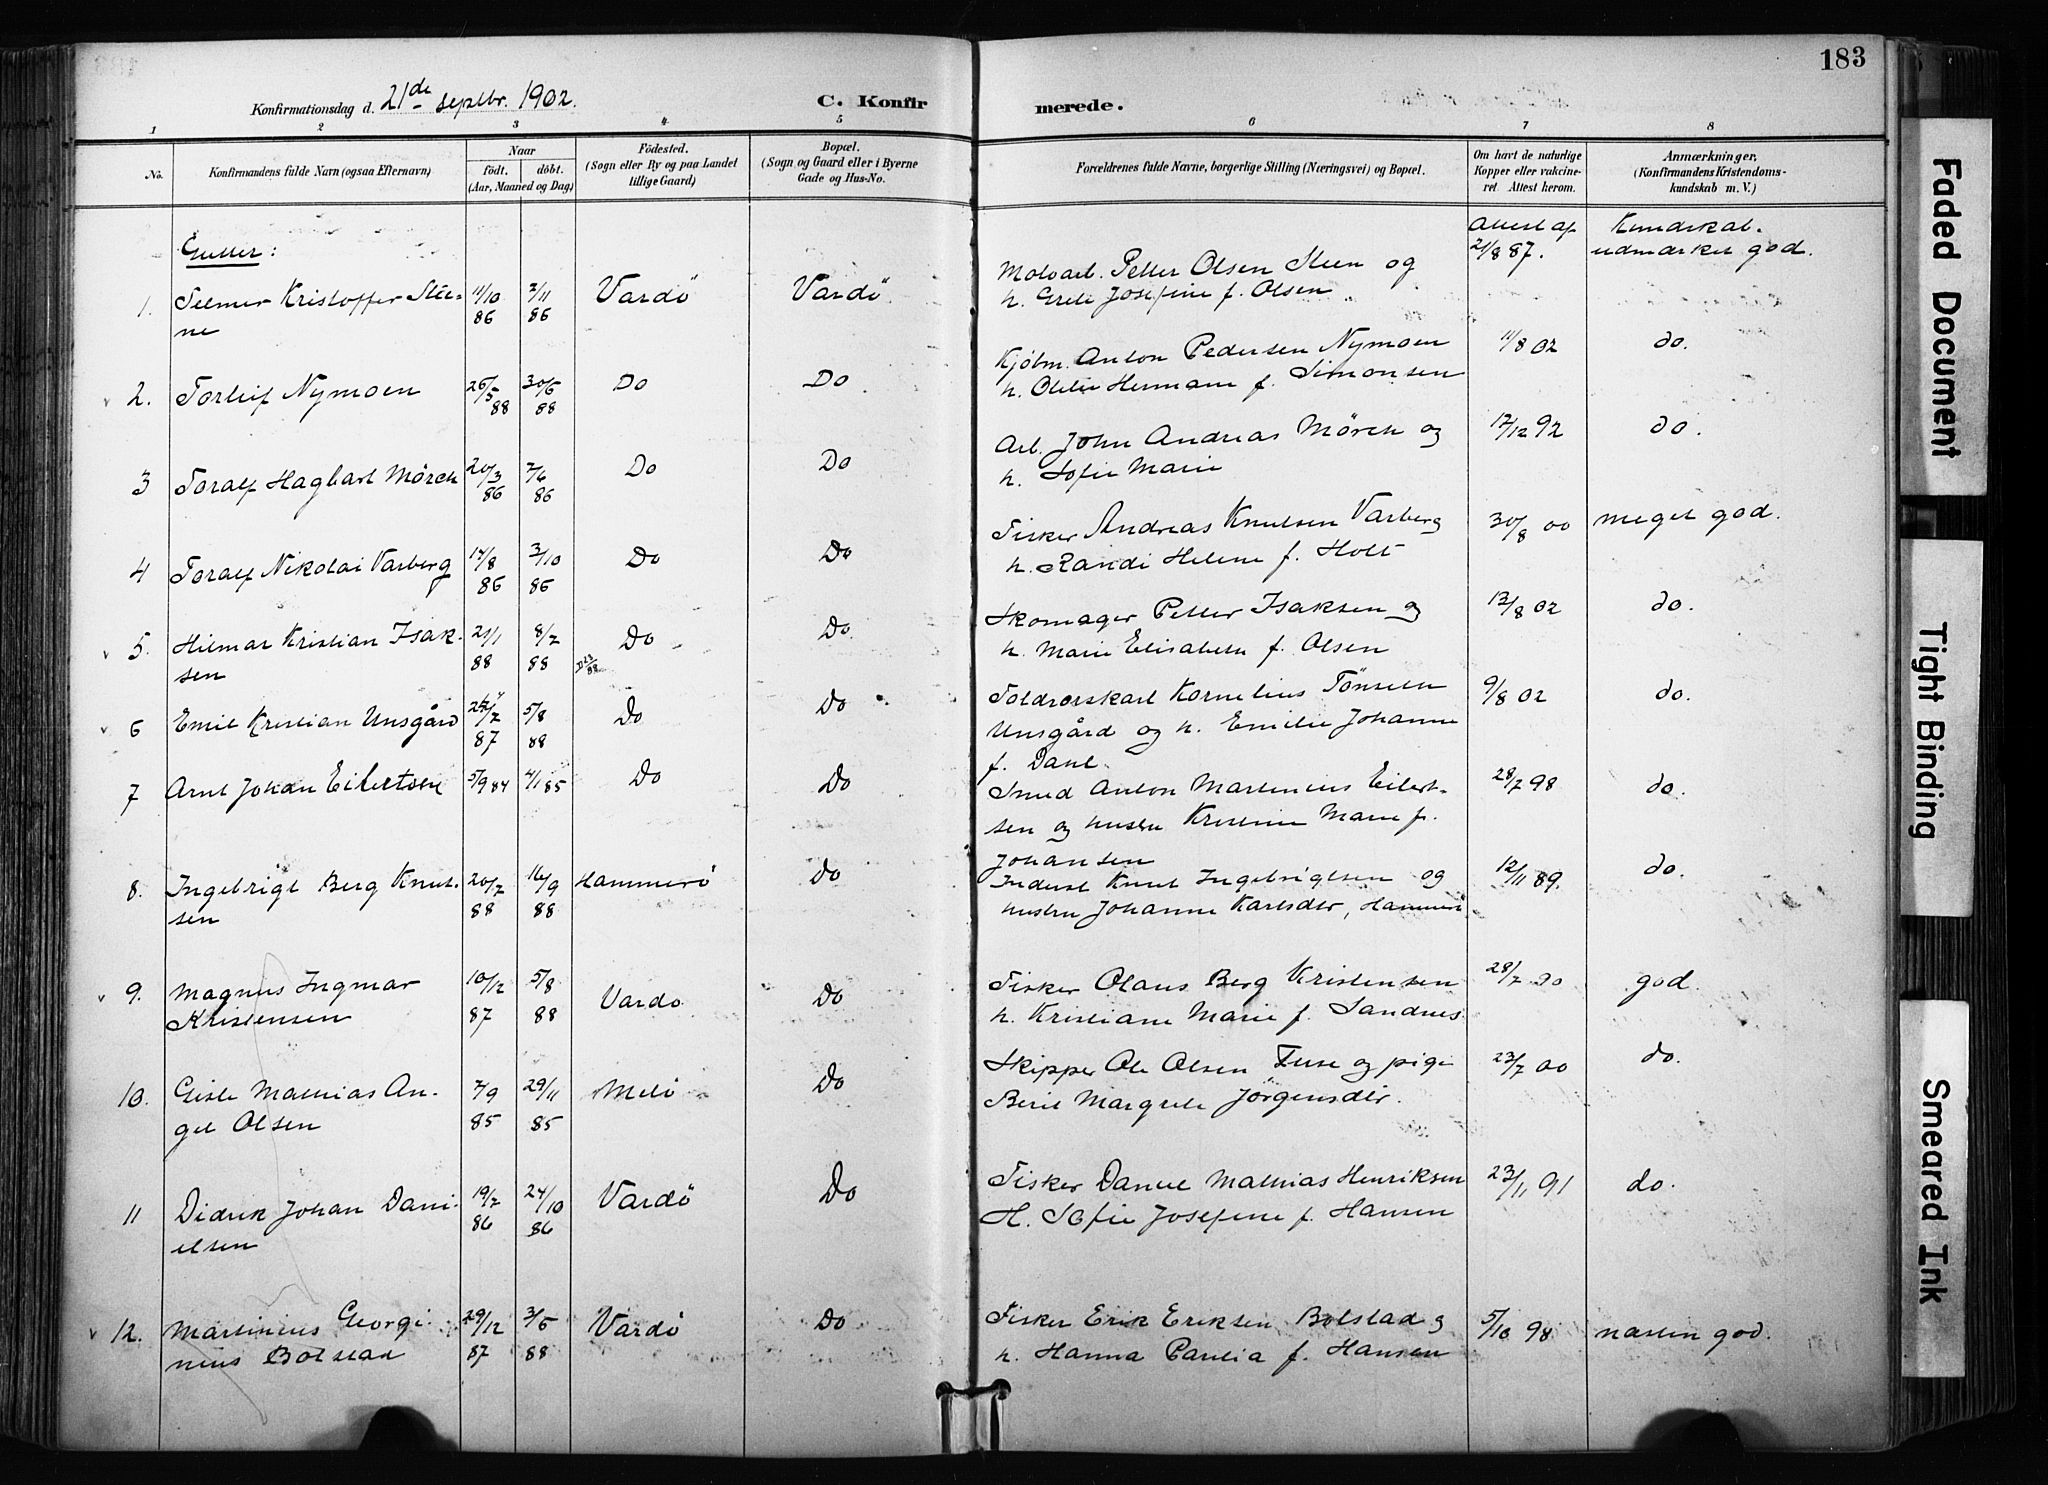 183
Konfirmationsdag d. 21de septbr. 1902.
C. Konfirmerede.
1 2 3 4 5 6 7 8
No.
Konfirmandens fulde Navn (ogsaa Efternavn)
Naar
født. døbt.
(Aar, Maaned og Dag)
Fødested.
(Sogn eller By og paa Landet
tillige Gaard.)
Bopæl.
(Sogn og Gaard eller i Byerne
Gade og Hus-No.
Forældrenes fulde Navne, borgerlige Stilling (Næringsvei) og Bopæl.
Om havt de naturlige
Kopper eller vakcine-
ret. Attest herom.
Anmærkninger.
(Konfirmandens Kristendoms-
kundskab m. V.)
Gutter:
Attest af
21/8 87.
Kundskab.
udmærket god.
1. Telmer Kristoffer Stee-
ne
11/10 86
7/11 86
Vardö
Vardö
Petter Olsen Steen og
h. Grete Josefine f. Olsen
2. Torleif Nymoen
26/5 88
30/6 88
Do
Do
Kjøbm. Anton Pedersen Nymoen
h. Otelie Hermane f. Simonsen
11/8 02
do.
3 Toralf Hagbart Mørch
20/3 86
7/6 86
Do
Do
Arb. John Andreas Mørch og
h. Sofie Marie
17/12 92
do.
4 Toralf Nikolai Varberg
14/8 86
3/10 86
Do
Do
Fisker Andreas Knutsen Varberg
h. Randi Helene f. Holt
30/8 00
meget god.
5. Hilmar Kristian Isak-
sen
21/1 88
8/2 88
Do
Do
Skomager Petter Isaksen og
h. Marie Elisabeth f. Olsen
13/8 02
do.
6 Emil Kristian Unsgård
87
5/8 88
Do
Do
Toldrorskarl Kornelius Tönseth
Unsgård og h. Emilie Johanne
f. Danl.
9/8 02
do.
7 Arnt Johan Eilertsen
5/9 84
4/1 85
Do
Do
Smed Anton Martinius Eilert-
sen og hustru Kristine Marie f.
Johansen
28/7 98
do.
8. Ingebrigt Berg Knut-
sen
20/7 88
16/9 88
Hammerö
Do
Inderst Knut Ingebrigtsen og
hustru Johanne Karlsdtr, Hammerö
12/11 89.
do.
9. Magnus Ingmar
Kristensen
10/12 87
5/8 88
Vardö
Do
Fisker Olaus Berg Kristensen
h. Kristiane Marie f. Sandnes.
28/7 90
god
10. Gisle Mathias An-
gel Olsen
7/9 85
29/11 85
Melö
Do
Skipper Ole Olsen Fuse og pige
Berit Margrete Jörgensdtr.
23/7 00
do.
11 Didrik Johan Dani-
elsen
19/7 86
24/10 86
Vardö
Do
Fisker Daniel Mathias Henriksen
H. Sofie Josefine f. Hansen
23/11 91
do.
12. Martinius Georgi-
nius Bolstad
29/12 87
3/6 88
Vardö
Do
Fisker Erik Eriksen Bolstad og
h. Hanna Paulia f. Hansen
5/10 98
næsten god.
Faded Document
Tight Binding
Smeared Ink